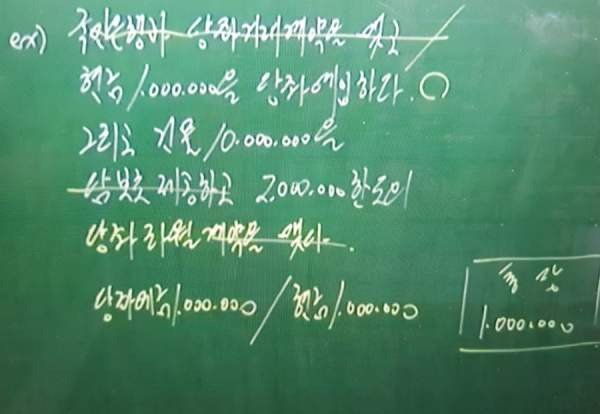 ex) 국민은행과 당좌거래계약을 맺고
현금 1.000.000을 당좌예입하다.
그리고 건물 10.000.000을
담보로 제공하고 2.000.000 한도의
당좌차월계약을 맺다.
당좌예금 1.000.000 / 현금 1.000.000
통장
1.000.000